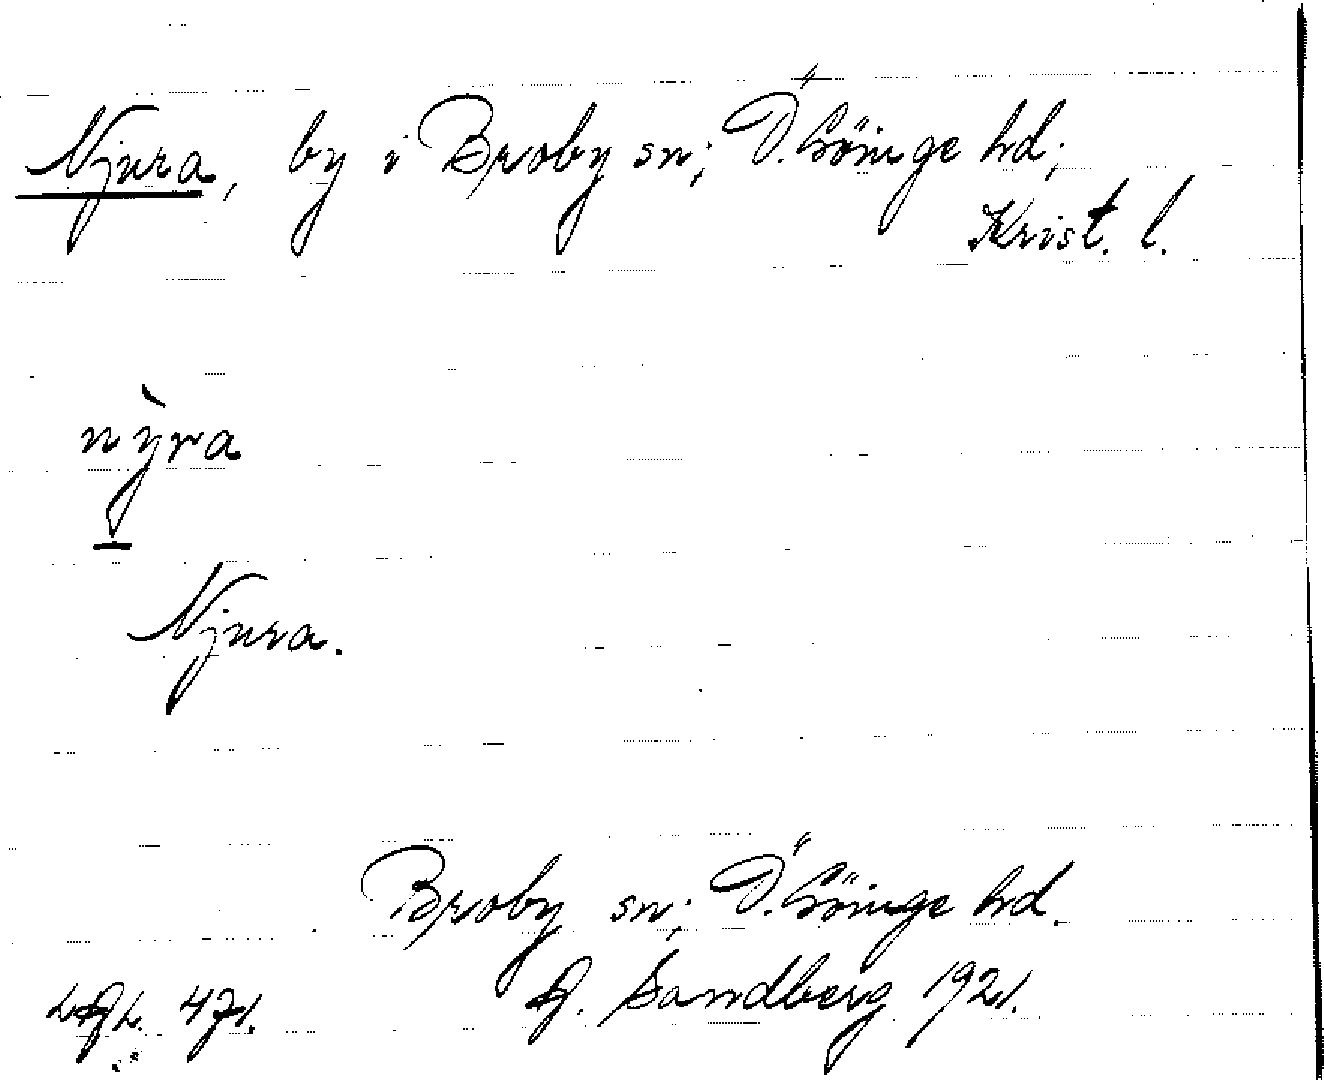 Njura, by i Broby sn; Ö. Göinge hd;
Krist. l.
nỳra
Njura.
Broby sn; Ö. Göinge hd.
Sandberg 1921.
471.